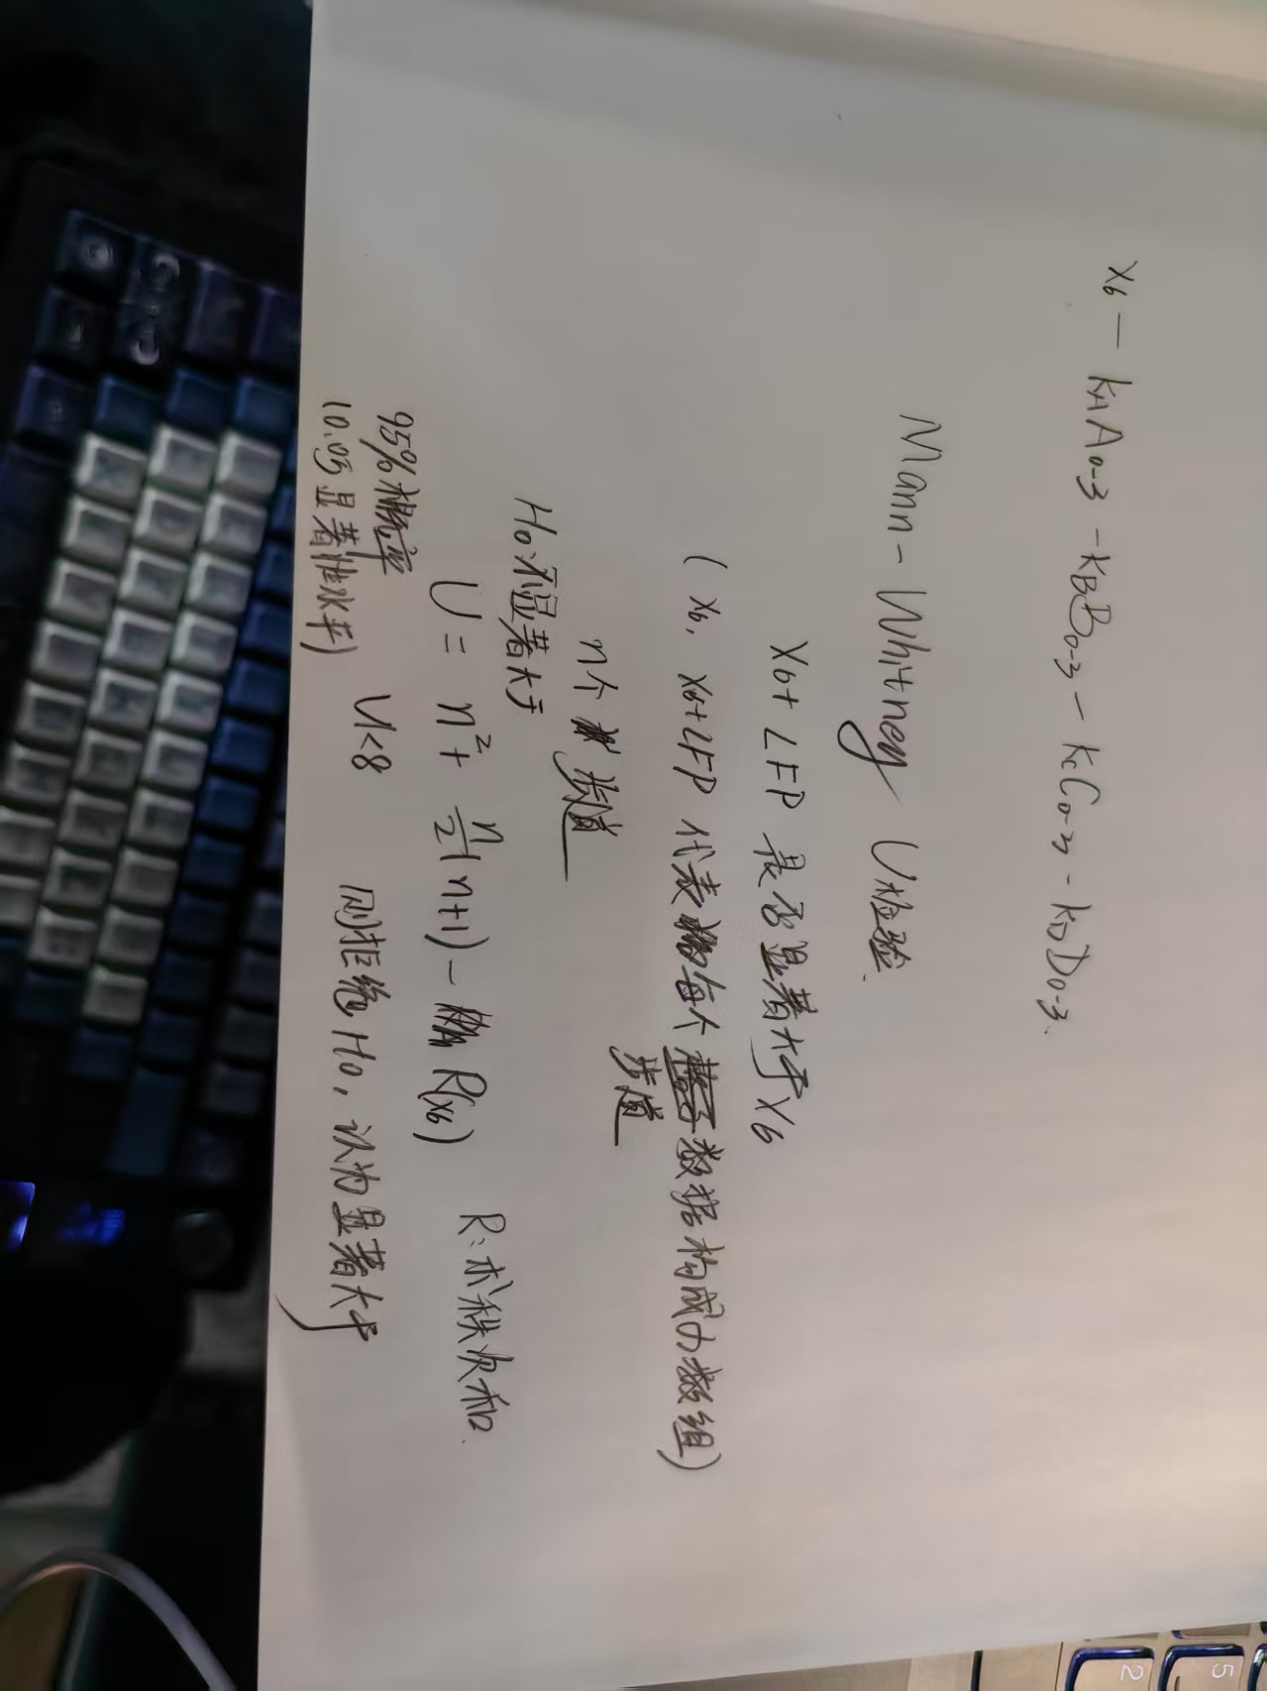 X6 — KAA0-3 - KBB0-3 - KCC0-3 - KDD0-3.
Mann-Whitney U检验.
X6+LFP 是否显著大于X6
(X6, X6+LFP 代表每个数据构成的数组)
步道
n个步道
H0 不显著大于
U = n² + n/2(n+1) - R(X6) R: 求秩次和.
95%概率 U<8 则拒绝H0, 认为显著大于
(0.05显著性水平)
5
2